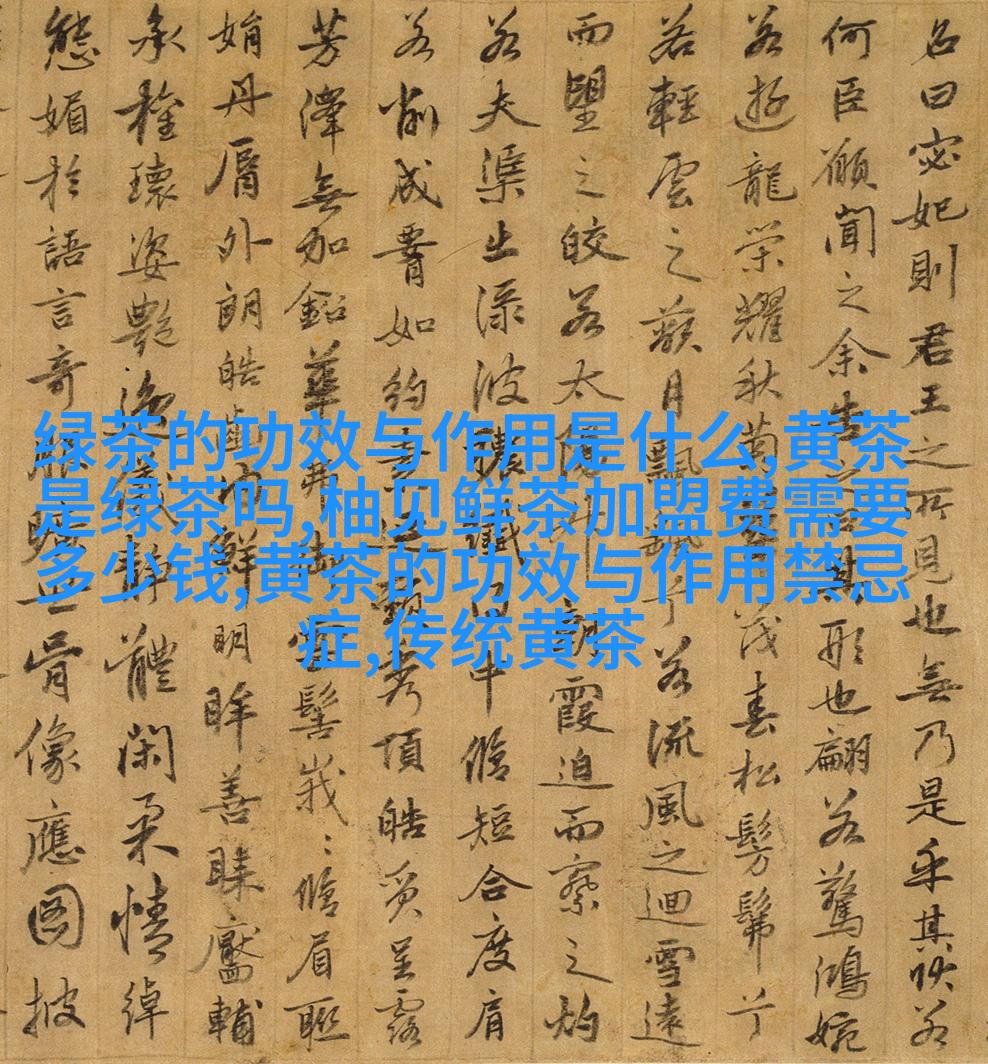 绿茶的功效与作用是什么,黄茶
是绿茶吗,柚见鲜茶加盟费需要
多少钱,黄茶的功效与作用禁忌
症,传统黄茶
名曰宓妃則君王之所見也無乃是乎其狀若
何臣願聞之余告之曰其形也翩若驚鴻婉
若遊龍榮耀秋菊華茂春松髣髴兮
若輕雲之蔽月飄颻兮若流風之迴雪遠
而望之皎若太陽升朝霞迫而察之灼
若夫渠出淥波穠纖得中脩短合度肩
若削成腰如約素延頸秀項皓質呈露
芳澤無加鉛華弗御雲髻峩〻脩眉聯
娟丹脣外朗皓齒內鮮明眸善睞靨輔
承權瓌姿豔逸儀靜體閑柔情綽
態媚於語言奇服曠世骨像應圖披